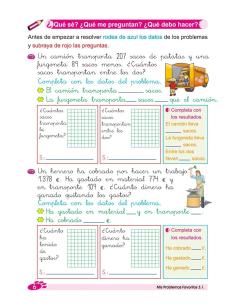 ¿Qué sé? ¿Qué me preguntan? ¿Qué debo hacer?
Antes de empezar a resolver rodea de azul los datos de los problemas
y subraya de rojo las preguntas.
Un camión transporta 207 sacos de patatas y una
furgoneta 89 sacos menos. ¿Cuántos
sacos transportan entre los dos?
Completa con los datos del problema.
El camión transporta
La furgoneta transporta sacos que el camión.
¿Cuántos
sacos
transporta
la
furgoneta?
S.:
¿Cuántos
sacos
transportan
entre los
dos?
S.:
Completa con
los resultados.
El camión lleva
sacos.
La furgoneta lleva
sacos.
Entre los dos
llevan sacos.
Un herrero ha cobrado por hacer un trabajo
1.378 €. Ha gastado en material 774 € y
en transporte 109 €. ¿Cuánto dinero ha
ganado quitando los gastos?
Completa con los datos del problema.
Ha gastado en material y en transporte
Ha cobrado
¿Cuánto
ha
tenido
de
gastos?
S.:
¿Cuánto
dinero ha
ganado?
S.:
Completa con
los resultados.
Ha cobrado €.
Ha gastado €.
Ha ganado €.
6
Mis Problemas Favoritos 3.1.